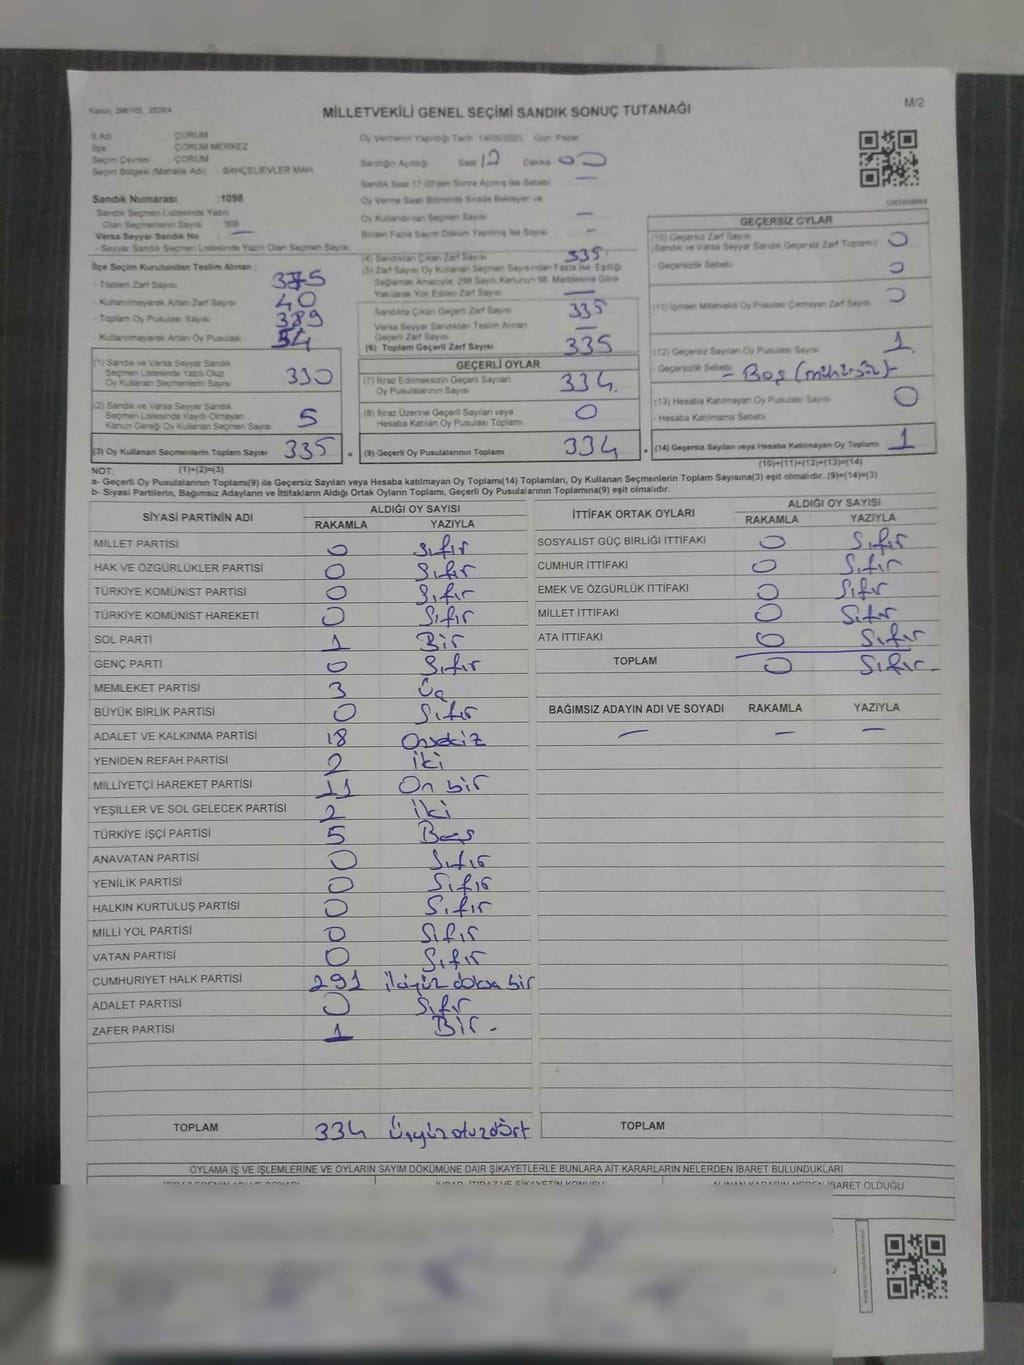 MİLLETVEKİLİ GENEL SEÇİMİ SANDIK SONUÇ TUTANAĞI
M/2
İl Adı ÇORUM
İlçe ÇORUM MERKEZ
Seçim Çevresi ÇORUM
Seçim Bölgesi (Mahalle Adı) BAHÇELİEVLER MAH.
Sandık Numarası :1098
- Sandık Seçmen Listesinde Yazılı
Olan Seçmenlerin Sayısı
Varsa Seyyar Sandık No —
- Seyyar Sandık Seçmen Listesinde Yazılı Olan Seçmen Sayısı
İlçe Seçim Kurulundan Teslim Alınan :
- Toplam Zarf Sayısı 375
- Kullanılmayarak Artan Zarf Sayısı 40
- Toplam Oy Pusulası Sayısı 389
- Kullanılmayarak Artan Oy Pusulası 54
(1) Sandık ve Varsa Seyyar Sandık
Seçmen Listesinde Yazılı Olup
Oy Kullanan Seçmenlerin Sayısı 330
(2) Sandık ve Varsa Seyyar Sandık
Seçmen Listesinde Kayıtlı Olmayan
Kanun Gereği Oy Kullanan Seçmen Sayısı 5
(3) Oy Kullanan Seçmenlerin Toplam Sayısı 335 =
(1)+(2)=(3)
Oy Vermenin Yapıldığı Tarih 14/05/2023 Gün Pazar
Sandığın Açıldığı Saat Dakika 00
Sandık Saat 17:00'den Sonra Açılmış İse Sebebi —
Oy Verme Saati Bitiminde Sırada Bekleyen ve
Oy Kullandırılan Seçmen Sayısı —
Birden Fazla Sayım Döküm Yapılmış İse Sayısı —
(4) Sandıktan Çıkan Zarf Sayısı 335
(5) Zarf Sayısı Oy Kullanan Seçmen Sayısından Fazla İse, Eşitliği
Sağlamak Amacıyla, 298 Sayılı Kanunun 98. Maddesine Göre
Yakılarak Yok Edilen Zarf Sayısı —
Sandıkta Çıkan Geçerli Zarf Sayısı 335
Varsa Seyyar Sandıktan Teslim Alınan
Geçerli Zarf Sayısı —
(6) Toplam Geçerli Zarf Sayısı 335
GEÇERLİ OYLAR
(7) İtiraz Edilmeksizin Geçerli Sayılan
Oy Pusulalarının Sayısı 334.
(8) İtiraz Üzerine Geçerli Sayılan veya
Hesaba Katılan Oy Pusulası Toplamı 0
(9) Geçerli Oy Pusulalarının Toplamı 334 +
GEÇERSİZ OYLAR
(10) Geçersiz Zarf Sayısı
(Sandık ve Varsa Seyyar Sandık Geçersiz Zarf Toplamı) 0
- Geçersizlik Sebebi 0
(11) İçinden Milletvekili Oy Pusulası Çıkmayan Zarf Sayısı 0
(12) Geçersiz Sayılan Oy Pusulası Sayısı 1.
- Geçersizlik Sebebi - Boş (mühürsüz)-
(13) Hesaba Katılmayan Oy Pusulası Sayısı 0
- Hesaba Katılmama Sebebi
(14) Geçersiz Sayılan veya Hesaba Katılmayan Oy Toplamı 1
(10)+(11)+(12)+(13)=(14)
NOT:
a- Geçerli Oy Pusulalarının Toplamı(9) ile Geçersiz Sayılan veya Hesaba katılmayan Oy Toplamı(14) Toplamları, Oy Kullanan Seçmenlerin Toplam Sayısına(3) eşit olmalıdır. (9)+(14)=(3)
b- Siyasi Partilerin, Bağımsız Adayların ve İttifakların Aldığı Ortak Oyların Toplamı, Geçerli Oy Pusulalarının Toplamına(9) eşit olmalıdır.
SİYASİ PARTİNİN ADI
ALDIĞI OY SAYISI
RAKAMLA YAZIYLA
MİLLET PARTİSİ 0 Sıfır
HAK VE ÖZGÜRLÜKLER PARTİSİ 0 Sıfır
TÜRKİYE KOMÜNİST PARTİSİ 0 Sıfır
TÜRKİYE KOMÜNİST HAREKETİ 0 Sıfır
SOL PARTİ 1 Bir
GENÇ PARTİ 0 Sıfır
MEMLEKET PARTİSİ 3 Üç
BÜYÜK BİRLİK PARTİSİ 0 Sıfır
ADALET VE KALKINMA PARTİSİ 18 Onsekiz
YENİDEN REFAH PARTİSİ 2 iki
MİLLİYETÇİ HAREKET PARTİSİ 11 On bir
YEŞİLLER VE SOL GELECEK PARTİSİ 2 iki
TÜRKİYE İŞÇİ PARTİSİ 5 Beş
ANAVATAN PARTİSİ 0 Sıfır
YENİLİK PARTİSİ 0 Sıfır
HALKIN KURTULUŞ PARTİSİ 0 Sıfır
MİLLİ YOL PARTİSİ 0 Sıfır
VATAN PARTİSİ 0 Sıfır
CUMHURİYET HALK PARTİSİ 291 ikiyüz doksan bir
ADALET PARTİSİ 0 Sıfır
ZAFER PARTİSİ 1 Bir -
TOPLAM 334 Üçyüz otuzdört
İTTİFAK ORTAK OYLARI
ALDIĞI OY SAYISI
RAKAMLA YAZIYLA
SOSYALİST GÜÇ BİRLİĞİ İTTİFAKI 0 Sıfır
CUMHUR İTTİFAKI 0 Sıfır
EMEK VE ÖZGÜRLÜK İTTİFAKI 0 Sıfır
MİLLET İTTİFAKI 0 Sıfır
ATA İTTİFAKI 0 Sıfır
TOPLAM 0 Sıfır -
BAĞIMSIZ ADAYIN ADI VE SOYADI RAKAMLA YAZIYLA
— — —
TOPLAM
OYLAMA İŞ VE İŞLEMLERİNE VE OYLARIN SAYIM DÖKÜMÜNE DAİR ŞİKAYETLERLE BUNLARA AİT KARARLARIN NELERDEN İBARET BULUNDUKLARI
ALINAN KARARIN NEDEN İBARET OLDUĞU